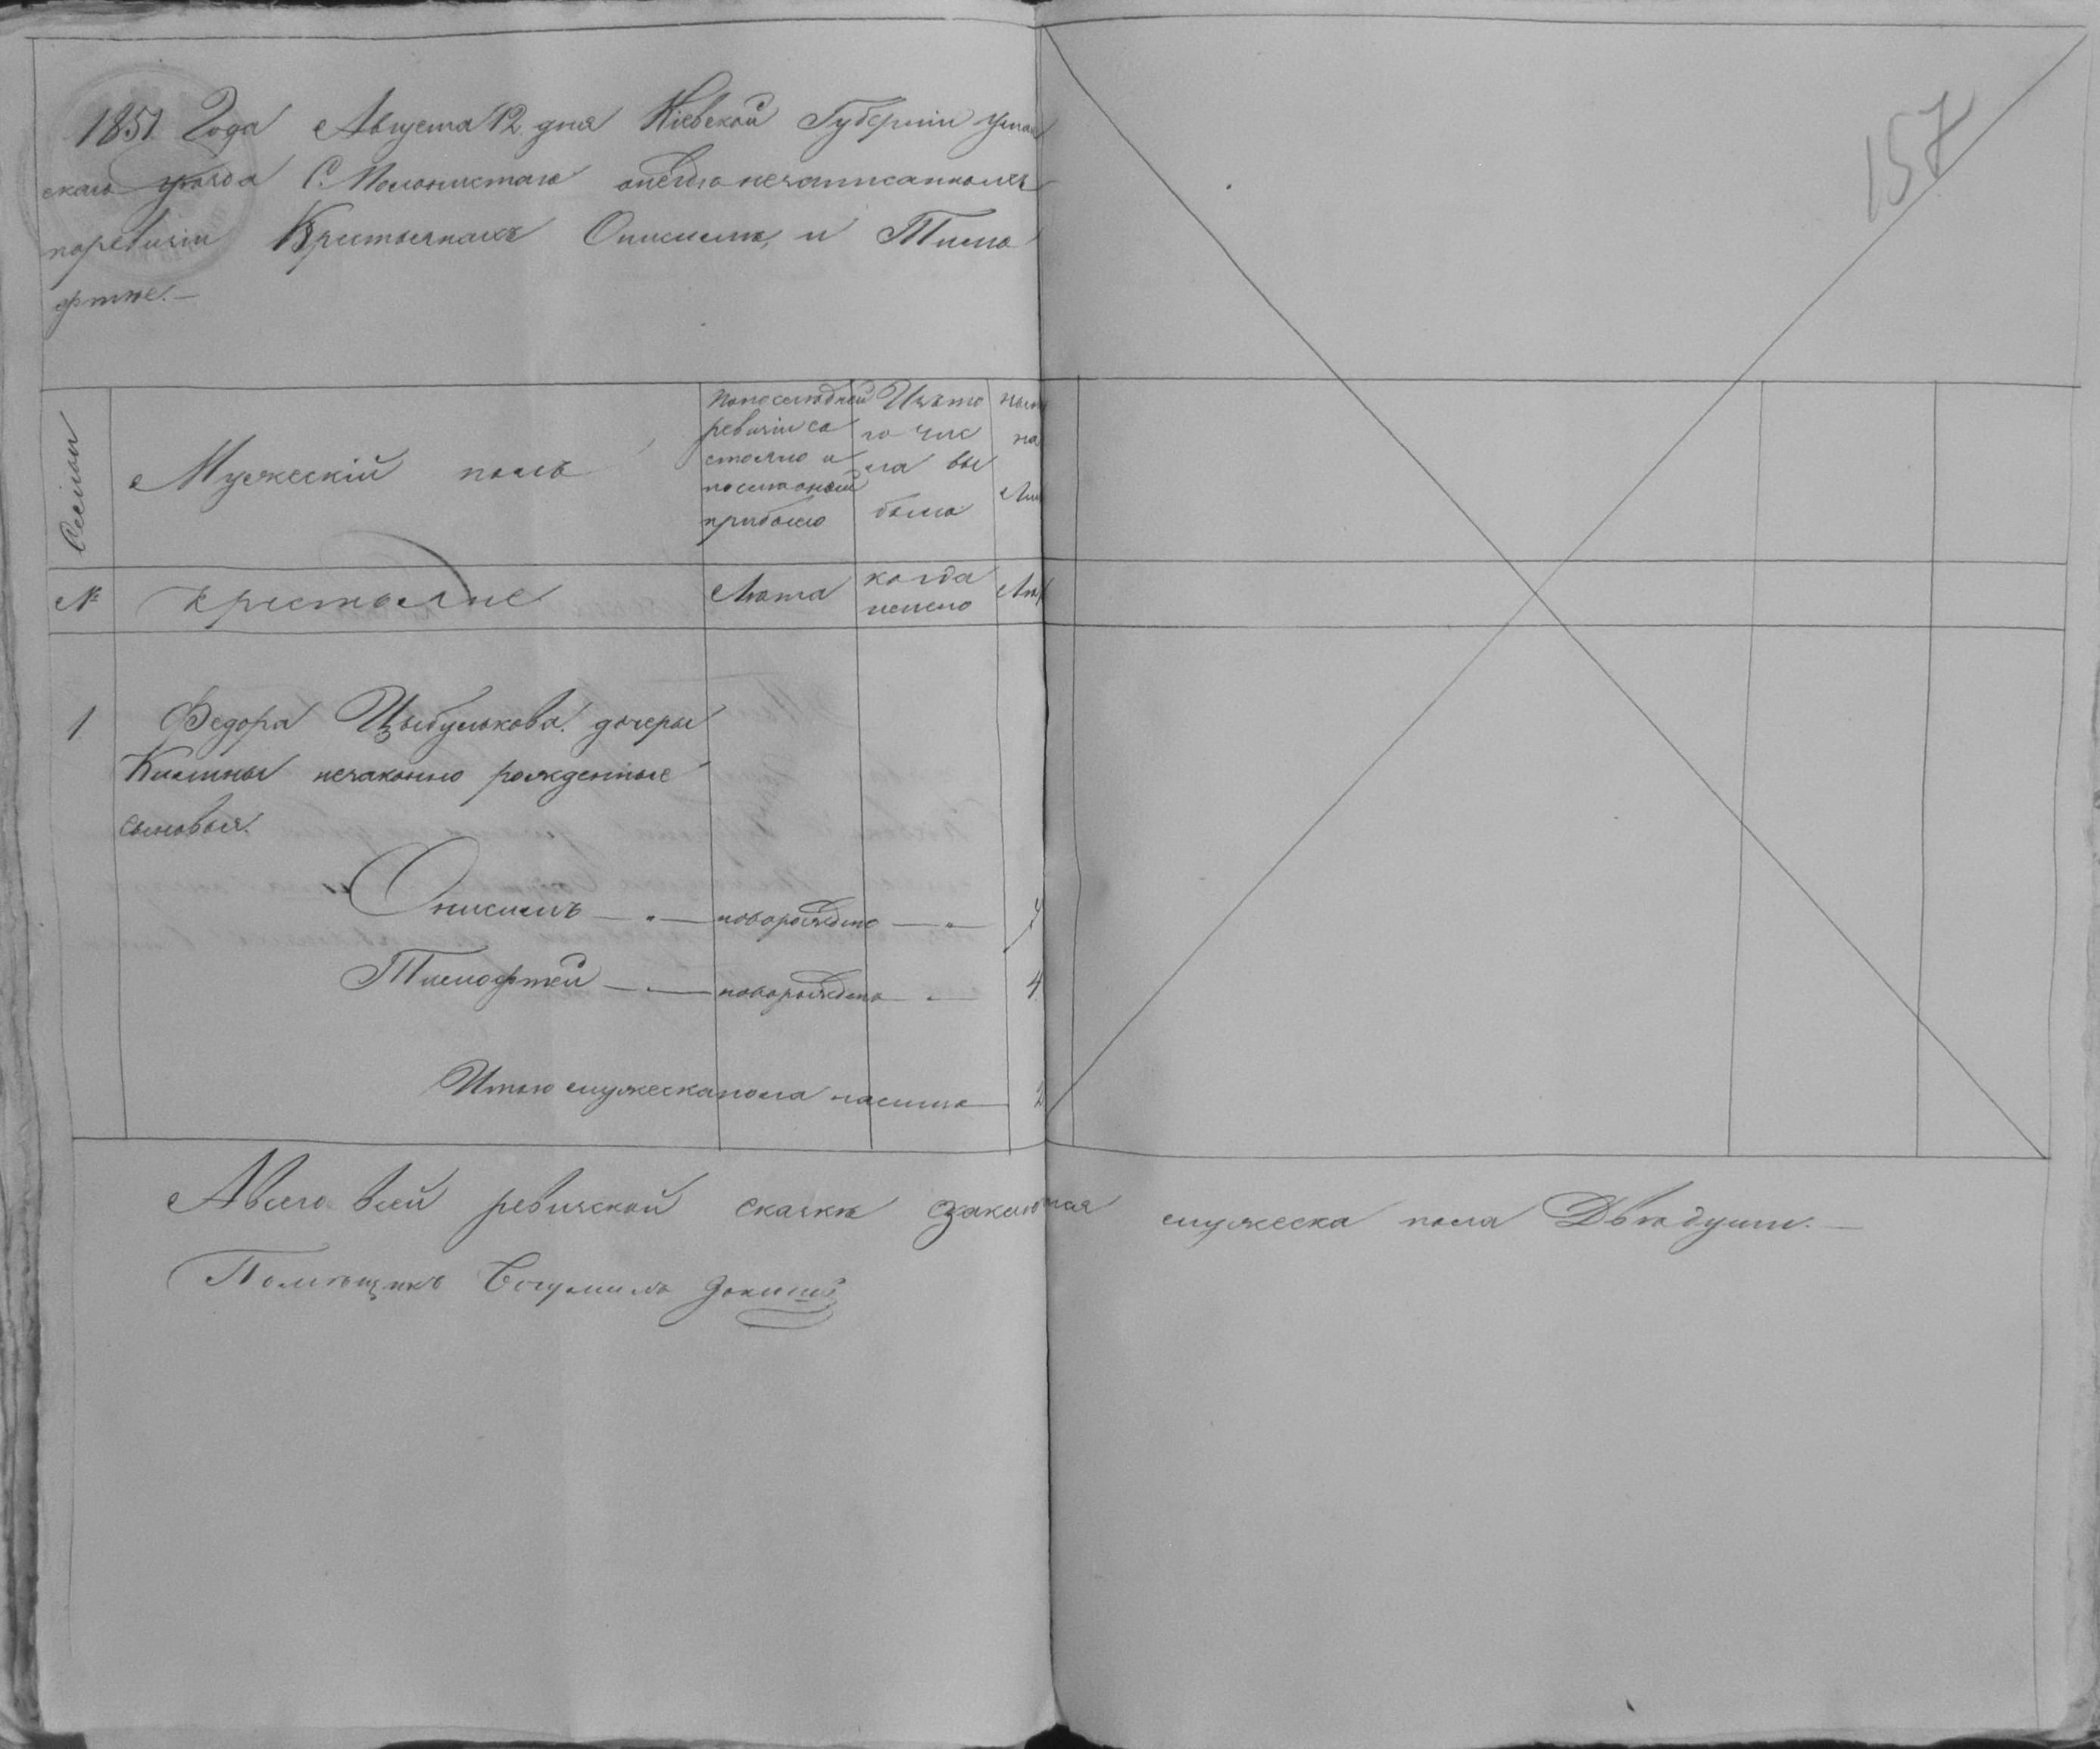 157
1851 Года Августа 12 дня Кіевской Губерніи Уман
скаго уѣзда С. Молонистаго о незаписанныхъ
поревизіи Крестьянахъ Онисимѣ, и Тимо
фтее. —
Семьи
Мужескій полъ
Попоследней ревизіи со стояло и послѣ оной прибыло
Изъ то го чис ла вы было
№
крестьяне
Лѣта
когда имено
Лѣт
1
Федора Цыбулькова дочеры
Килины незаконно рожденные
сыновья.
Онисимъ — новорожденъ — 7
Тимофтей — новорожденъ — 4
Итого мужеска пола налицо 2
А всего в сей ревизской сказке заключ
мужеска пола Двѣ души. —
Помѣщикъ Богумилъ